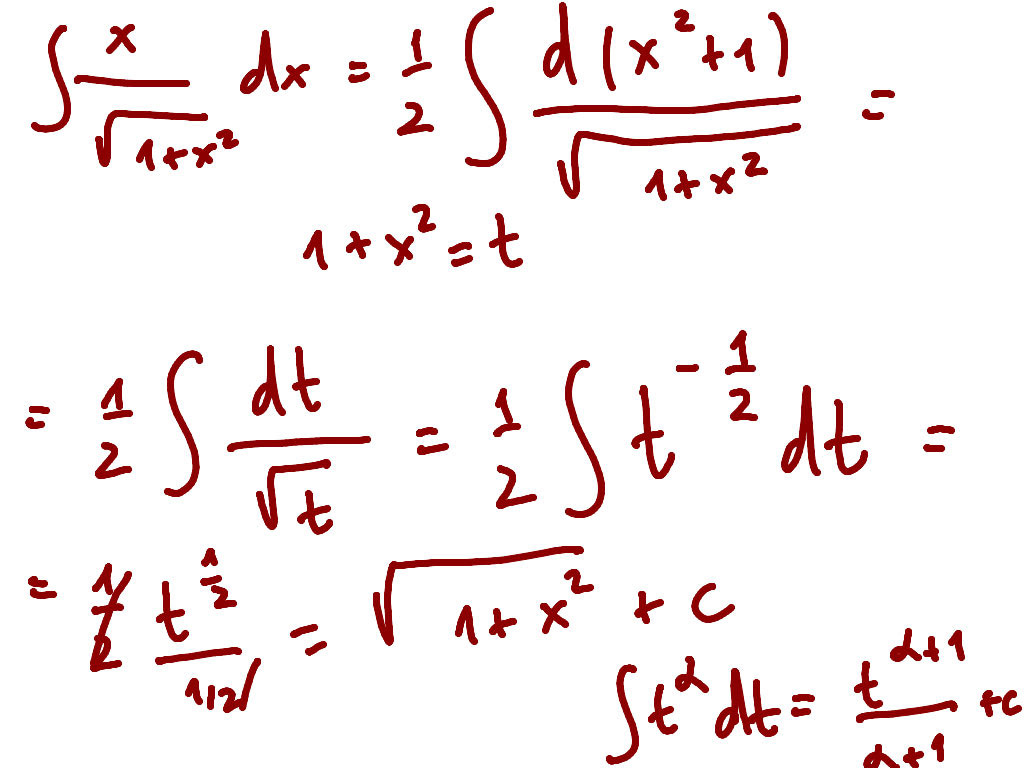 ∫ x/√(1+x²) dx = 1/2 ∫ d(x²+1)/√(1+x²) =
1+x² = t
= 1/2 ∫ dt/√t = 1/2 ∫ t^(-1/2) dt =
= 1/2 t^(1/2)/(1/2) = √(1+x²) + c
∫ t^α dt = t^(α+1)/(α+1) + c